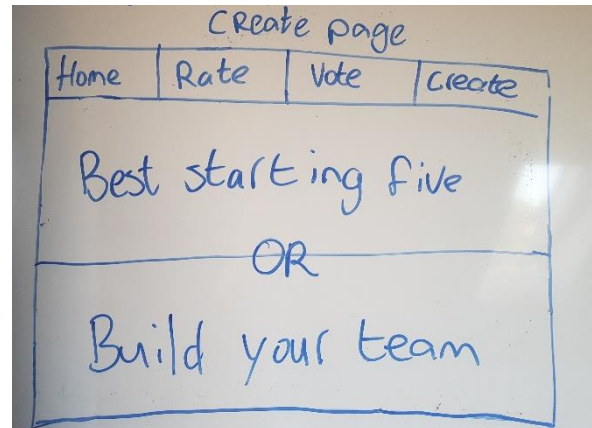 Create page
Home Rate Vote Create
Best starting five
OR
Build your team